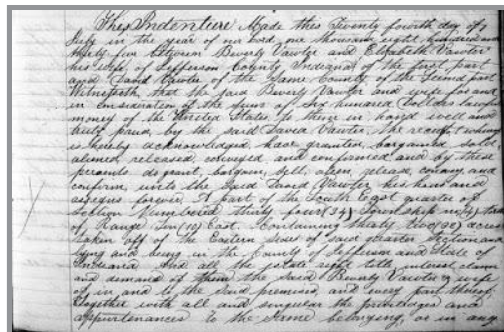 This Indenture Made this Twenty fourth day of
July in the year of our Lord, one thousand eight hundred and
thirty five Between Beverly Vawter and Elizabeth Vawter
his wife of Jefferson County Indiana of the first part
and David Vawter of the Same County of the Second part
Witnesseth, that the Said Beverly Vawter and wife for and
in consideration of the Sum of Six hundred Dollars lawful
money of the United States to them in hand well and
truly paid, by the said David Vawter, the receipt whereof
is hereby acknowledged, have granted, bargained, sold
aliened, released, conveyed and confirmed and by these
presents do grant, bargain, sell, alien, release, convey and
confirm, unto the Said David Vawter his heirs and
assigns forever. A part of the South East quarter of
Section Numbered thirty four (34) Township no (4) 
of Range Ten (10) East. Containing thirty two (32) acres
taken off of the Eastern Side of said quarter Section and
lying and being in the County of Jefferson and State of
Indiana And all the estate right title interest claim
and demand of them the Said Beverly Vawter & wife
of in and to the Said premises, and every part thereof
Together with all and singular the privileges and
appurtenances To the Same belonging, or in any